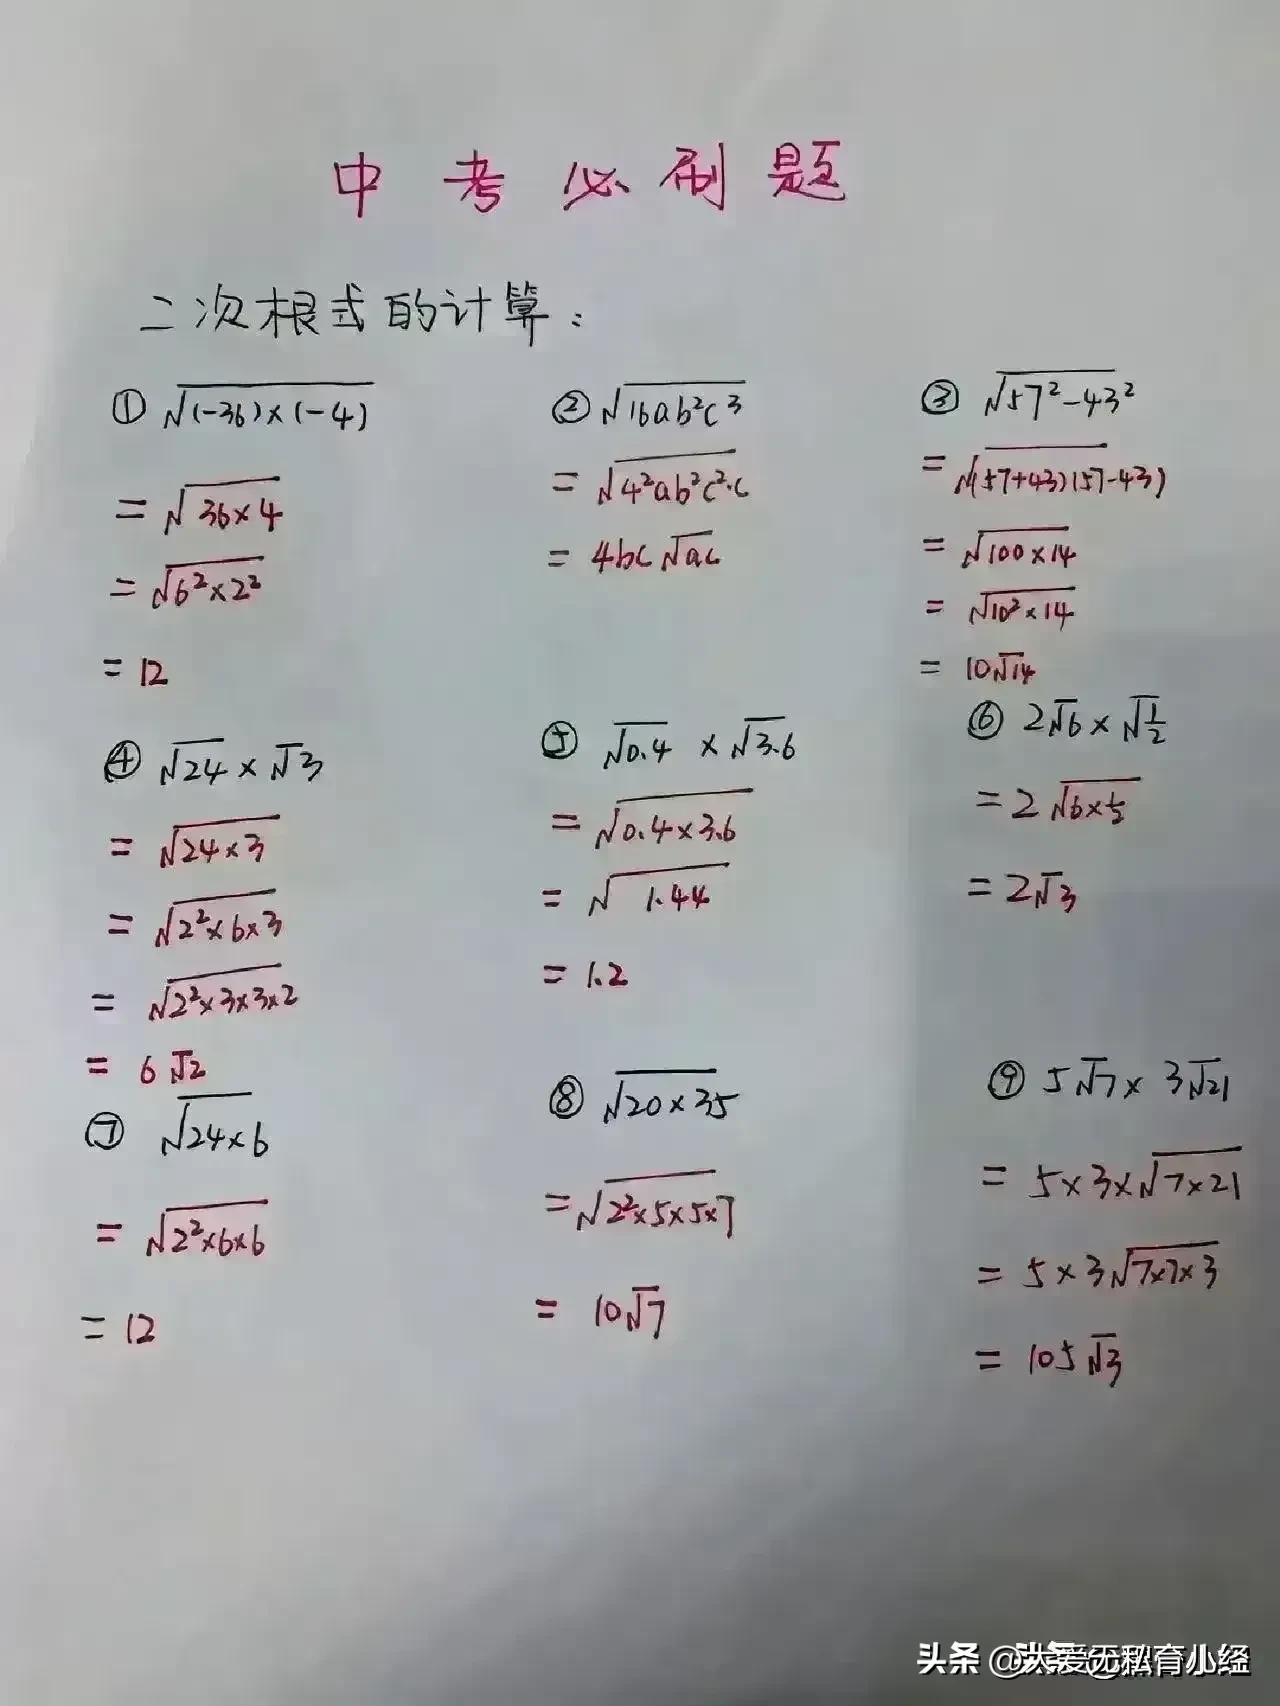 中考必刷题
二次根式的计算:
① √(-36)×(-4)
= √36×4
= √6²×2²
= 12
② √16ab²c³
= √4²ab²c²·c
= 4bc√ac
③ √57²-43²
= √(57+43)(57-43)
= √100×14
= √10²×14
= 10√14
④ √24 × √3
= √24×3
= √2²×6×3
= √2²×3×3×2
= 6√2
⑤ √0.4 × √3.6
= √0.4×3.6
= √1.44
= 1.2
⑥ 2√6 × √1/2
= 2√6×1/2
= 2√3
⑦ √24×6
= √2²×6×6
= 12
⑧ √20×35
= √2²×5×5×7
= 10√7
⑨ 5√7 × 3√21
= 5×3×√7×21
= 5×3√7×7×3
= 105√3